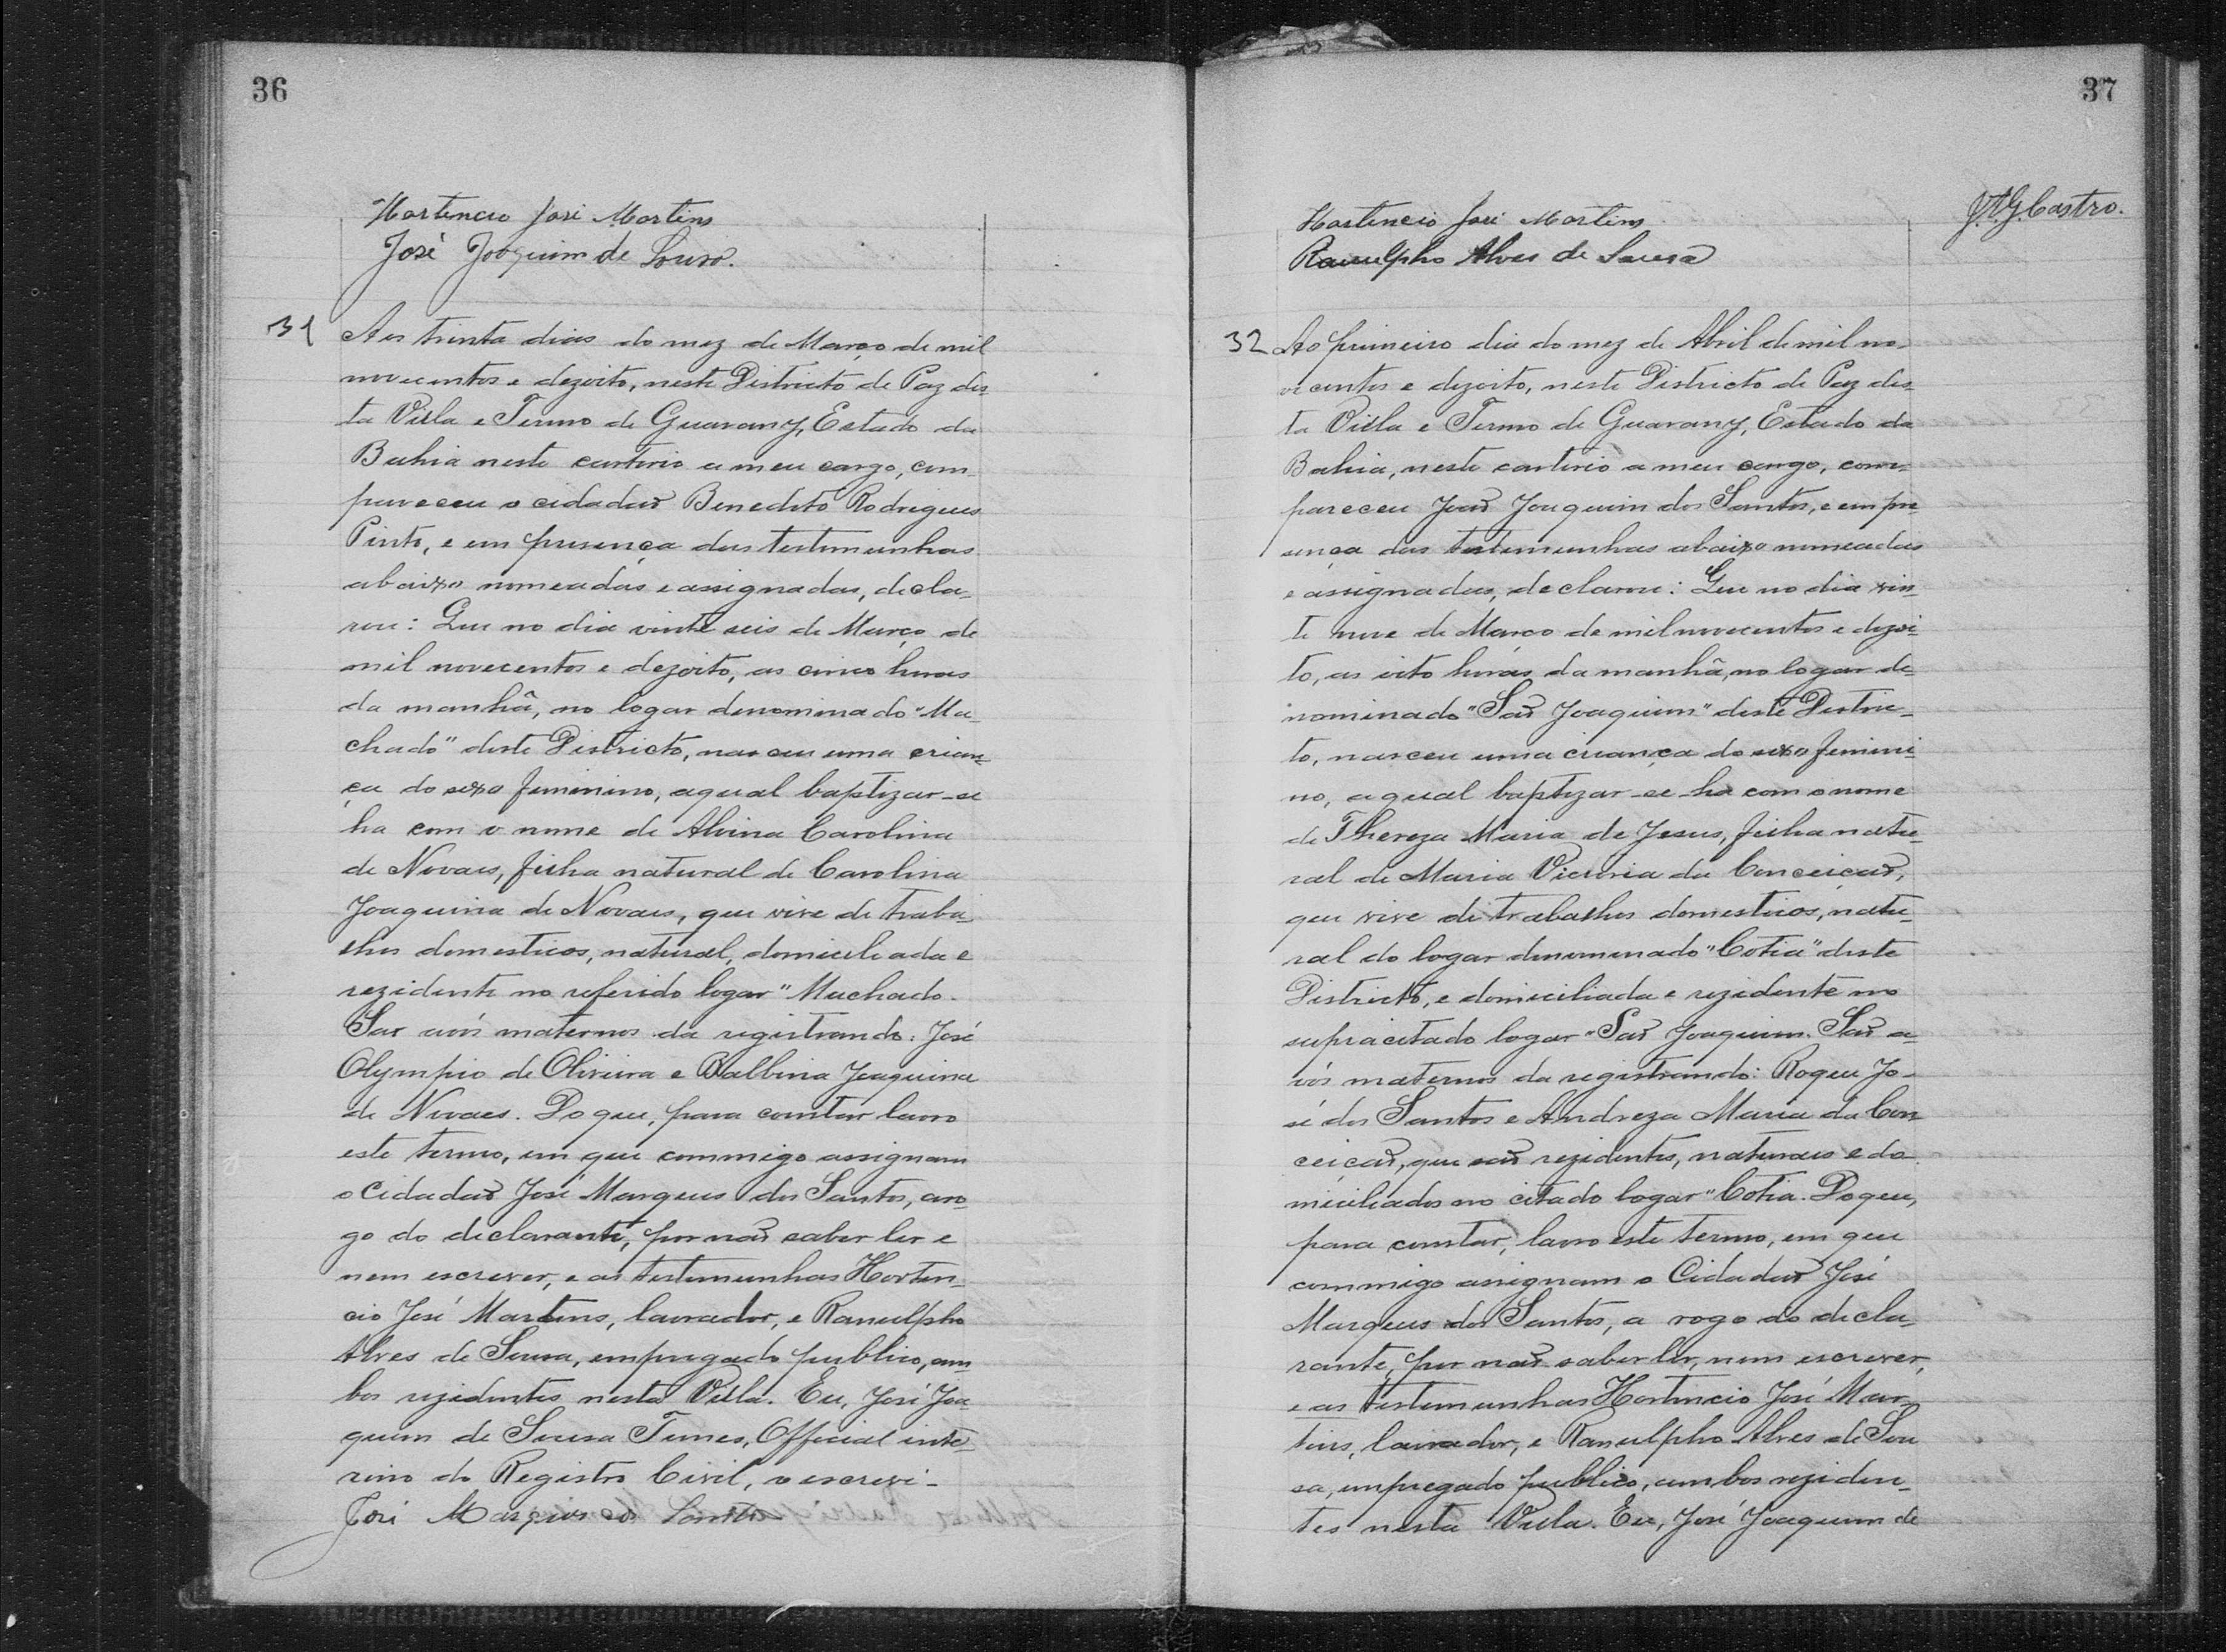 36
Hortencio José Martins
José Joaquim de Sousa.
31
Aos trinta dias do mez de Março de mil
novecentos e dezoito, neste Districto de Paz des-
ta Villa e Termo de Guarany, Estado da
Bahia neste cartorio a meu cargo, com-
pareceu o cidadão Benedito Rodrigues
Pinto, e em presença das testimunhas
abaixo nomeadas e assignadas, decla-
rou: Que no dia vinte seis de Março de
mil novecentos e dezoito, as cinco horas
da manhã, no logar denominado "Ma-
chado" deste Districto, nasceu uma crian-
ça do sexo feminino, aqual baptizar-se
ha com o nome de Alvina Carolina
de Novaes, filha natural de Carolina
Joaquina de Novaes, que vive de traba-
lhos domesticos, natural, domiciliada e
rezidente no referido logar "Machado.
São avós maternos da registrando: José
Olympio de Oliveira e Balbina Joaquina
de Novaes. Do que, para constar lavro
este termo, em que commigo assignam
o Cidadão José Marques dos Santos, aro-
go do declarante, por não saber ler e
nem escrever, e as testemunhas Horten-
cio José Martins, lavrador, e Ranulpho
Alves de Sousa, empregado publico, am-
bos rezidentes nesta Villa. Eu, José Joa-
quim de Sousa Tunes, Official inte-
rino do Registro Civil, o escrevi-
José Marques dos Santos
37
J.A.G. Castro.
Hortencio José Martins
Ranulpho Alves de Sousa
32
Ao primeiro dia do mez de Abril de mil no-
vecentos e dezoito, neste Districto de Paz des-
ta Villa e Termo de Guarany, Estado da
Bahia, neste cartorio a meu cargo, com-
pareceu João Joaquim dos Santos, e em pre-
sença das testemunhas abaixo nomeadas
e assignadas, declarou: Que no dia vin-
te nove de Março de mil novecentos e dezoi-
to, as oito horas da manhã, no logar de-
nominado "São Joaquim" deste Distric-
to, nasceu uma criança do sexo femini-
no, aqual baptizar-se-ha com o nome
de Thereza Maria de Jesus, filha natu-
ral de Maria Victoria da Conceição,
que vive de trabalhos domesticos, natu-
ral do logar denominado "Cotia" deste
Districto, e domiciliada e rezidente no
supracitado logar "São Joaquim. São a-
vós maternos da registrando: Roque Jo-
sé dos Santos e Andreza Maria da Con-
ceição, que são rezidentes, naturaes e do-
miciliados no citado logar "Cotia. Do que,
para constar, lavro este termo, em que
commigo assignam o Cidadão José
Marques dos Santos, a rogo do decla-
rante, por não saber ler, nem escrever,
e as testemunhas Hortencio José Mar-
tins, lavrador, e Ranulpho Alves de Sou-
sa, empregado publico, ambos reziden-
tes nesta Villa. Eu, José Joaquim de